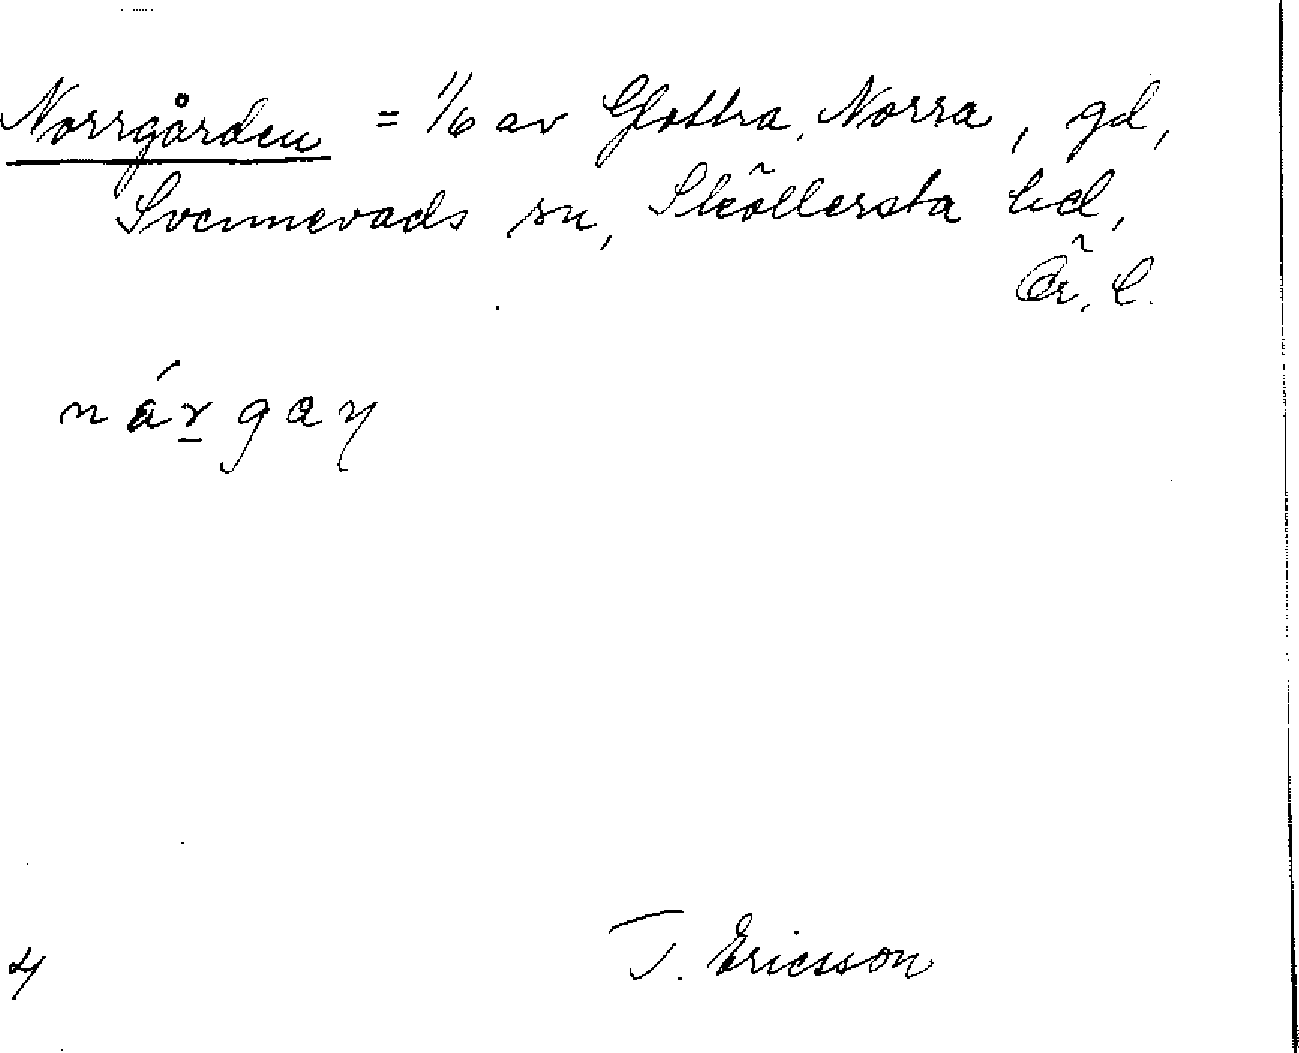 Norrgården = 1/6 av Glottra, Norra, gd,
Svennevads sn, Sköllersta hd,
Ör. l.
T. Ericsson